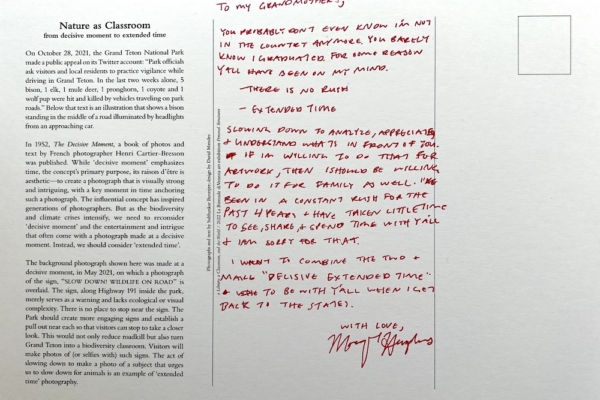 Nature as Classroom
from decisive moment to extended time
On October 28, 2021, the Grand Teton National Park
made a public appeal on its Twitter account: "Park officials
ask visitors and local residents to practice vigilance while
driving in Grand Teton. In the last two weeks alone, 5
bison, 1 elk, 1 mule deer, 1 pronghorn, 1 coyote and 1
wolf pup were hit and killed by vehicles traveling on park
roads." Below that text is an illustration that shows a bison
standing in the middle of a road illuminated by headlights
from an approaching car.
In 1952, The Decisive Moment, a book of photos and
text by French photographer Henri Cartier-Bresson
was published. While 'decisive moment' emphasizes
time, the concept's primary purpose, its raison d'être is
aesthetic—to create a photograph that is visually strong
and intriguing, with a key moment in time anchoring
such a photograph. The influential concept has inspired
generations of photographers. But as the biodiversity
and climate crises intensify, we need to reconsider
'decisive moment' and the entertainment and intrigue
that often come with a photograph made at a decisive
moment. Instead, we should consider 'extended time'.
The background photograph shown here was made at a
decisive moment, in May 2021, on which a photograph
of the sign, "SLOW DOWN! WILDLIFE ON ROAD" is
overlaid. The sign, along Highway 191 inside the park,
merely serves as a warning and lacks ecological or visual
complexity. There is no place to stop near the sign. The
Park should create more engaging signs and establish a
pull out near each so that visitors can stop to take a closer
look. This would not only reduce roadkill but also turn
Grand Teton into a biodiversity classroom. Visitors will
make photos of (or selfies with) such signs. The act of
slowing down to make a photo of a subject that urges
us to slow down for animals is an example of 'extended
time' photography.
Photographs and text by Subhankar Banerjee; design by David Mendez
TO MY GRANDMOTHERS,
YOU PROBABLY DON'T EVEN KNOW I'M NOT
IN THE COUNTRY ANYMORE. YOU BARELY
KNOW I GRADUATED. FOR SOME REASON
Y'ALL HAVE BEEN ON MY MIND.
- THERE IS NO RUSH
- EXTENDED TIME
SLOWING DOWN TO ANALYZE, APPRECIATE,
+ UNDERSTAND WHAT IS IN FRONT OF YOU.
IF I'M WILLING TO DO THAT FOR
ARTWORK, THEN I SHOULD BE WILLING
TO DO IT FOR FAMILY AS WELL. I'VE
BEEN IN A CONSTANT RUSH FOR THE
PAST 4 YEARS + HAVE TAKEN LITTLE TIME
TO SEE, SHARE, + SPEND TIME WITH Y'ALL
+ I AM SORRY FOR THAT.
I WANT TO COMBINE THE TWO +
MAKE "DECISIVE EXTENDED TIME"
TO BE WITH Y'ALL WHEN I GET
BACK TO THE STATES.
WITH LOVE,